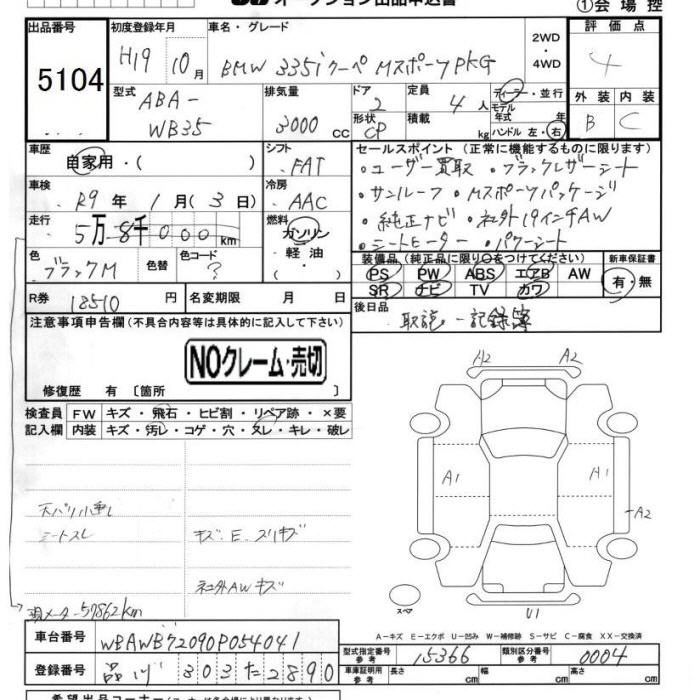 オークション出品申込書
①会場控
出品番号 5104
初度登録年月 H19 10月
車名・グレード BMW 335iクーペ MスポーツPKG
2WD・4WD
評価点 4
型式 ABA-WB35
排気量 3000 cc
ドア 2
形状 CP
定員 4人
積載 kg
ディーラー・並行
モデル年式 年
ハンドル 左・右
外装 B
内装 C
車歴 自家用・( )
シフト FAT
車検 R9年 1月(3日)
冷房 AAC
走行 5万8千000km
燃料 ガソリン・軽油・( )
色 ブラックM 色替
色コード ?
R券 18510円
名変期限 月 日
セールスポイント(正常に機能するものに限ります)
・ユーザー買取 ・ブラックレザーシート
・サンルーフ ・Mスポーツパッケージ
・純正ナビ ・社外19インチAW
・シートヒーター ・パワーシート
装備品(純正品に限り○をつけてください)
新車保証書 有・無
PS PW ABS エアB AW
SR ナビ TV カワ
後日品 取説 記録簿
注意事項申告欄(不具合内容等は具体的に記入して下さい)
NOクレーム・売切
修復歴 有〔箇所 〕
検査員記入欄
FW キズ・飛石・ヒビ割・リペア跡・×要
内装 キズ・汚レ・コゲ・穴・スレ・キレ・破レ
天バリ小垂レ
シートスレ
キズ.E.スリキズ
社外AWキズ
現メーター57862km
A2 A2
A1 A1
A2
スペア
U1
A-キズ E-エクボ U-凹み W-補修跡 S-サビ C-腐食 XX-交換済
車台番号 WBAWB72090P054041
型式指定番号 参考 15366
類別区分番号 参考 0004
登録番号 品川 303 た 2890
車庫証明用 参考 長さ cm 幅 cm 高さ cm
希望出品コーナー